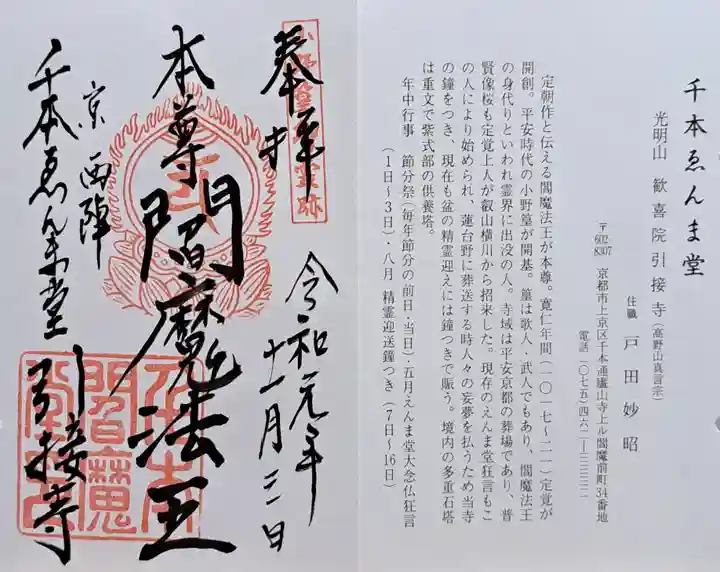 奉拝
本尊 閻魔法王
令和元年十一月三日
京 西陣
千本ゑんま堂 引接寺
千本ゑんま堂
光明山 歓喜院引接寺(高野山真言宗)
住職 戸田妙昭
〒602 8307 京都市上京区千本通廬山寺上ル閻魔前町34番地
電話(〇七五)四六二―三三三二
定朝作と伝える閻魔法王が本尊。寛仁年間(一〇一七〜二一)定覚が
開創。平安時代の小野篁が開基。篁は歌人・武人でもあり、閻魔法王
の身代りといわれ霊界に出没の人。寺域は平安京都の葬場であり、普
賢像桜も定覚上人が叡山横川から招来した。現存のえんま堂狂言もこ
の人により始められ、蓮台野に葬送する時人々の妄夢を払うため当寺
の鐘をつき、現在も盆の精霊迎えには鐘つきで賑う。境内の多重石塔
は重文で紫式部の供養塔。
年中行事 節分祭(毎年節分の前日・当日)・五月えんま堂大念仏狂言
(1日〜3日)・八月 精霊迎送鐘つき(7日〜16日)